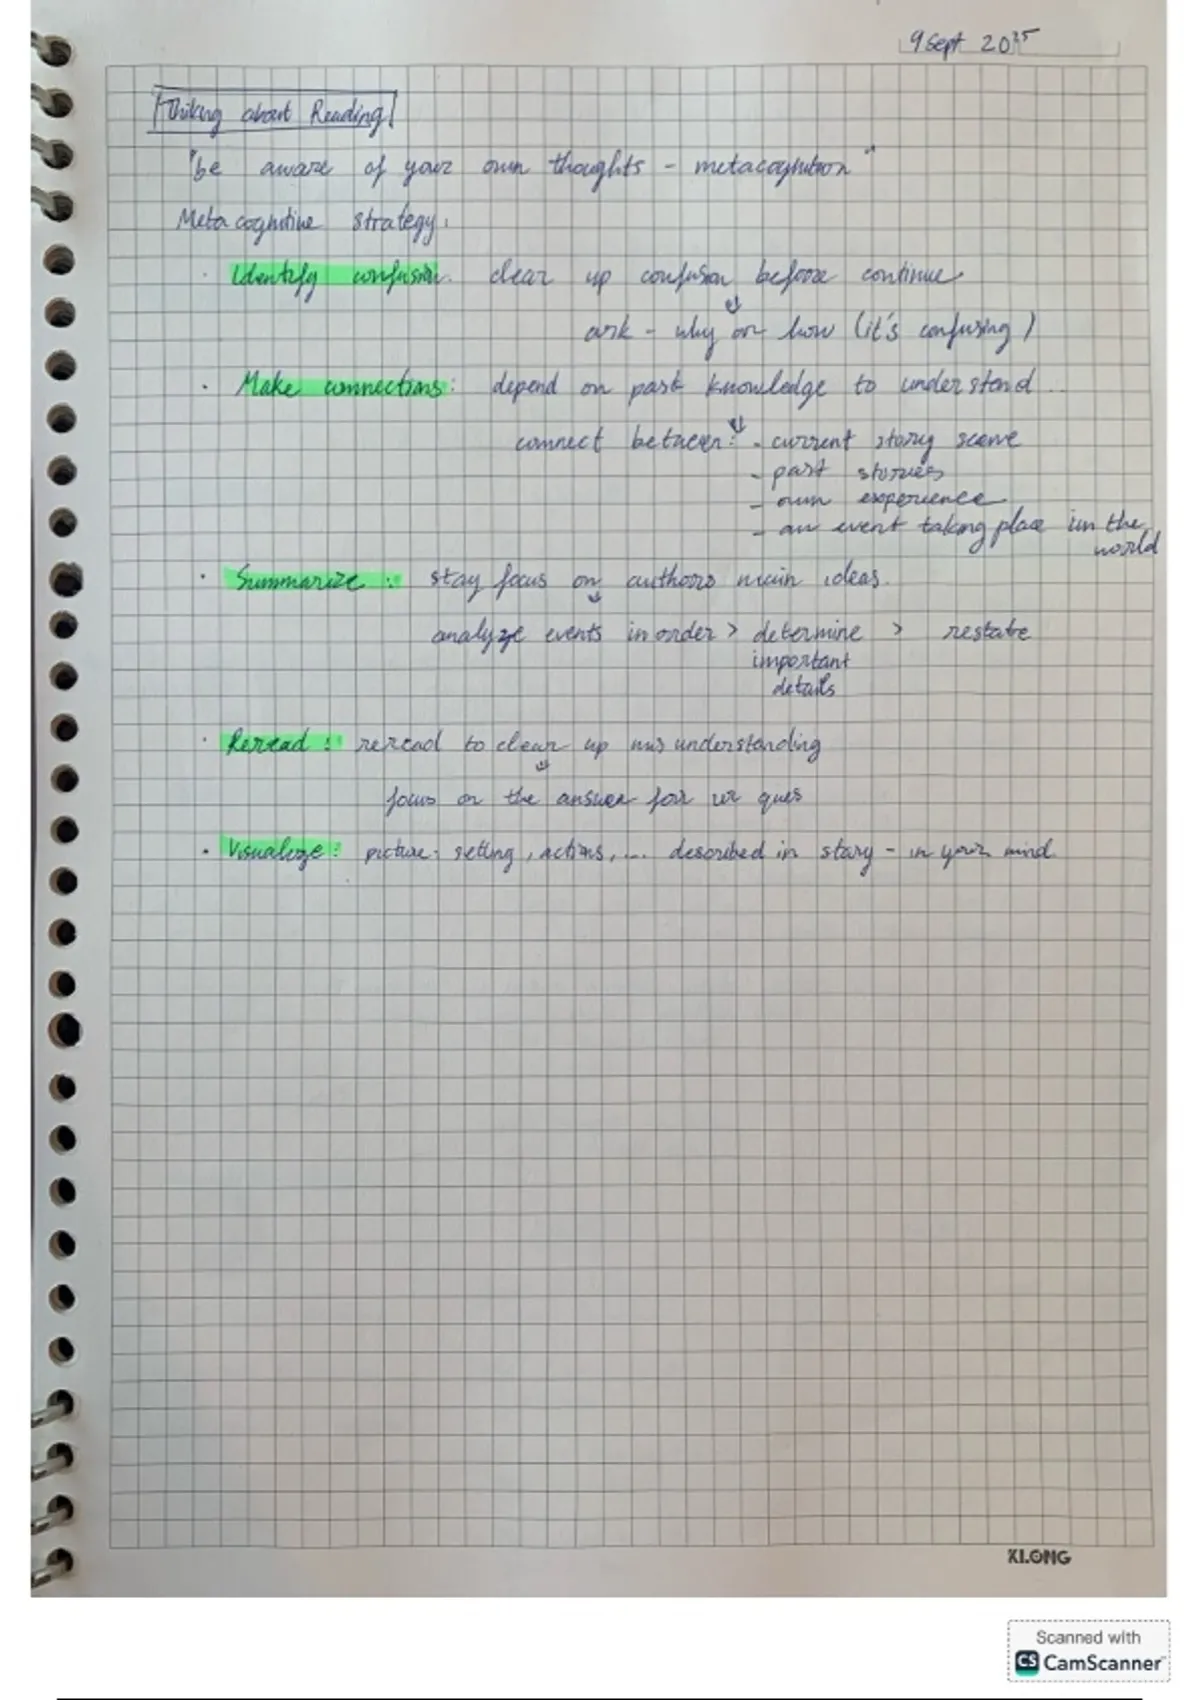 9 Sept 2025
Thiking about Reading
"be aware of your own thoughts - metacognition"
Metacognitive strategy:
· Identify confusion: clear up confusion before continue
ask - why or how (it's confusing)
· Make connections: depend on past knowledge to understand...
connect between: - current story scene
- past stories
- own experience
- an event taking place in the
world
· Summarize: stay focus on authors main ideas.
analyze events in order > determine > restate
important
details
· Reread: reread to clear up misunderstanding
focus on the answer for ur ques
· Visualize: picture: setting, actions, ... described in story - in your mind
KLONG
Scanned with
CS CamScanner